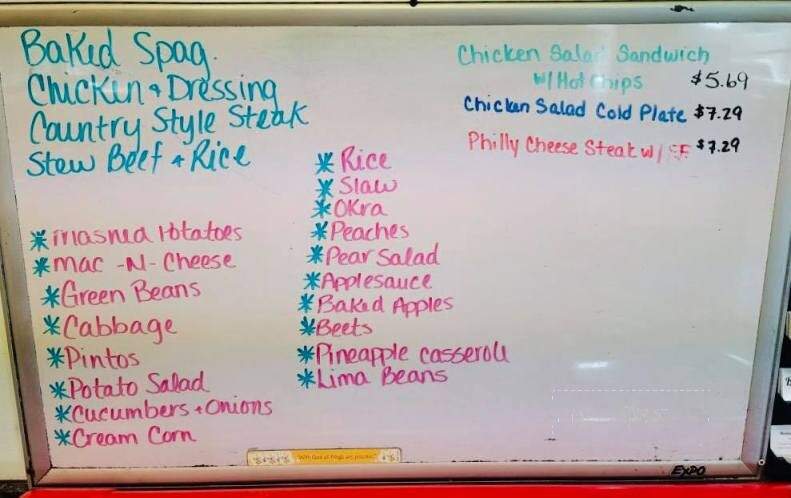 Baked Spag.
Chicken + Dressing
Country Style Steak
Stew Beef + Rice
* Mashed Potatoes
* Mac -N- Cheese
* Green Beans
* Cabbage
* Pintos
* Potato Salad
* Cucumbers + Onions
* Cream Corn
* Rice
* Slaw
* Okra
* Peaches
* Pear Salad
* Applesauce
* Baked Apples
* Beets
* Pineapple Casserole
* Lima Beans
Chicken Salad Sandwich
w/ Hot Chips $5.69
Chicken Salad Cold Plate $7.29
Philly Cheese Steak w/ FF $7.29
With God all things are possible
EXPO